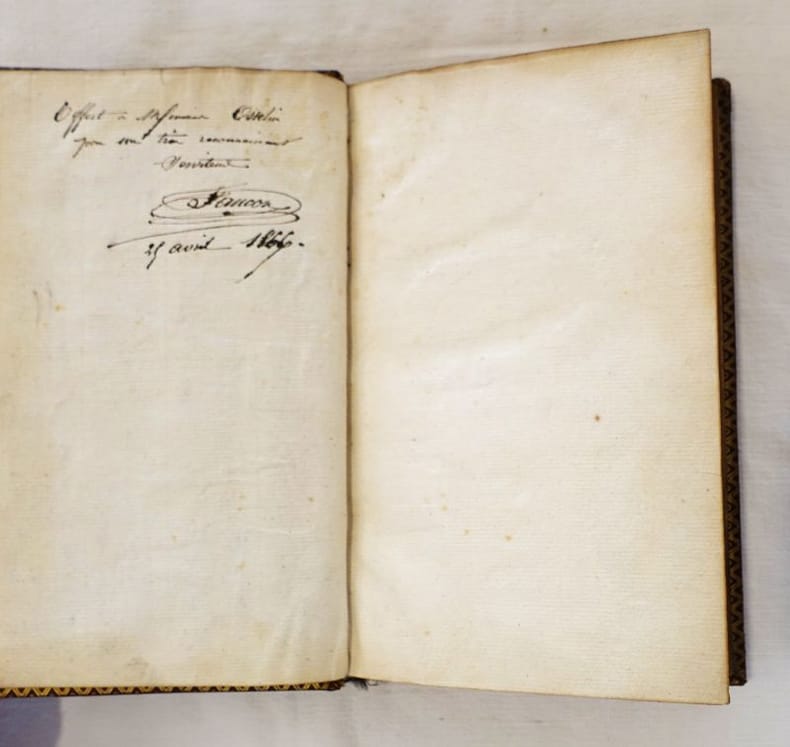 Offert à Monsieur Osselin
par son très reconnaissant
Serviteur
25 avril 1866.